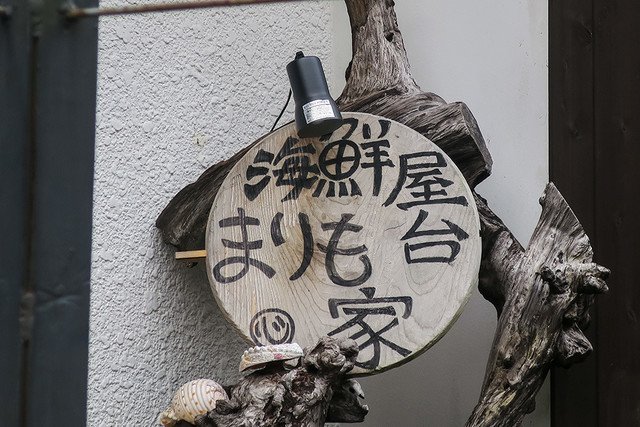 海鮮屋台
まりも家
心